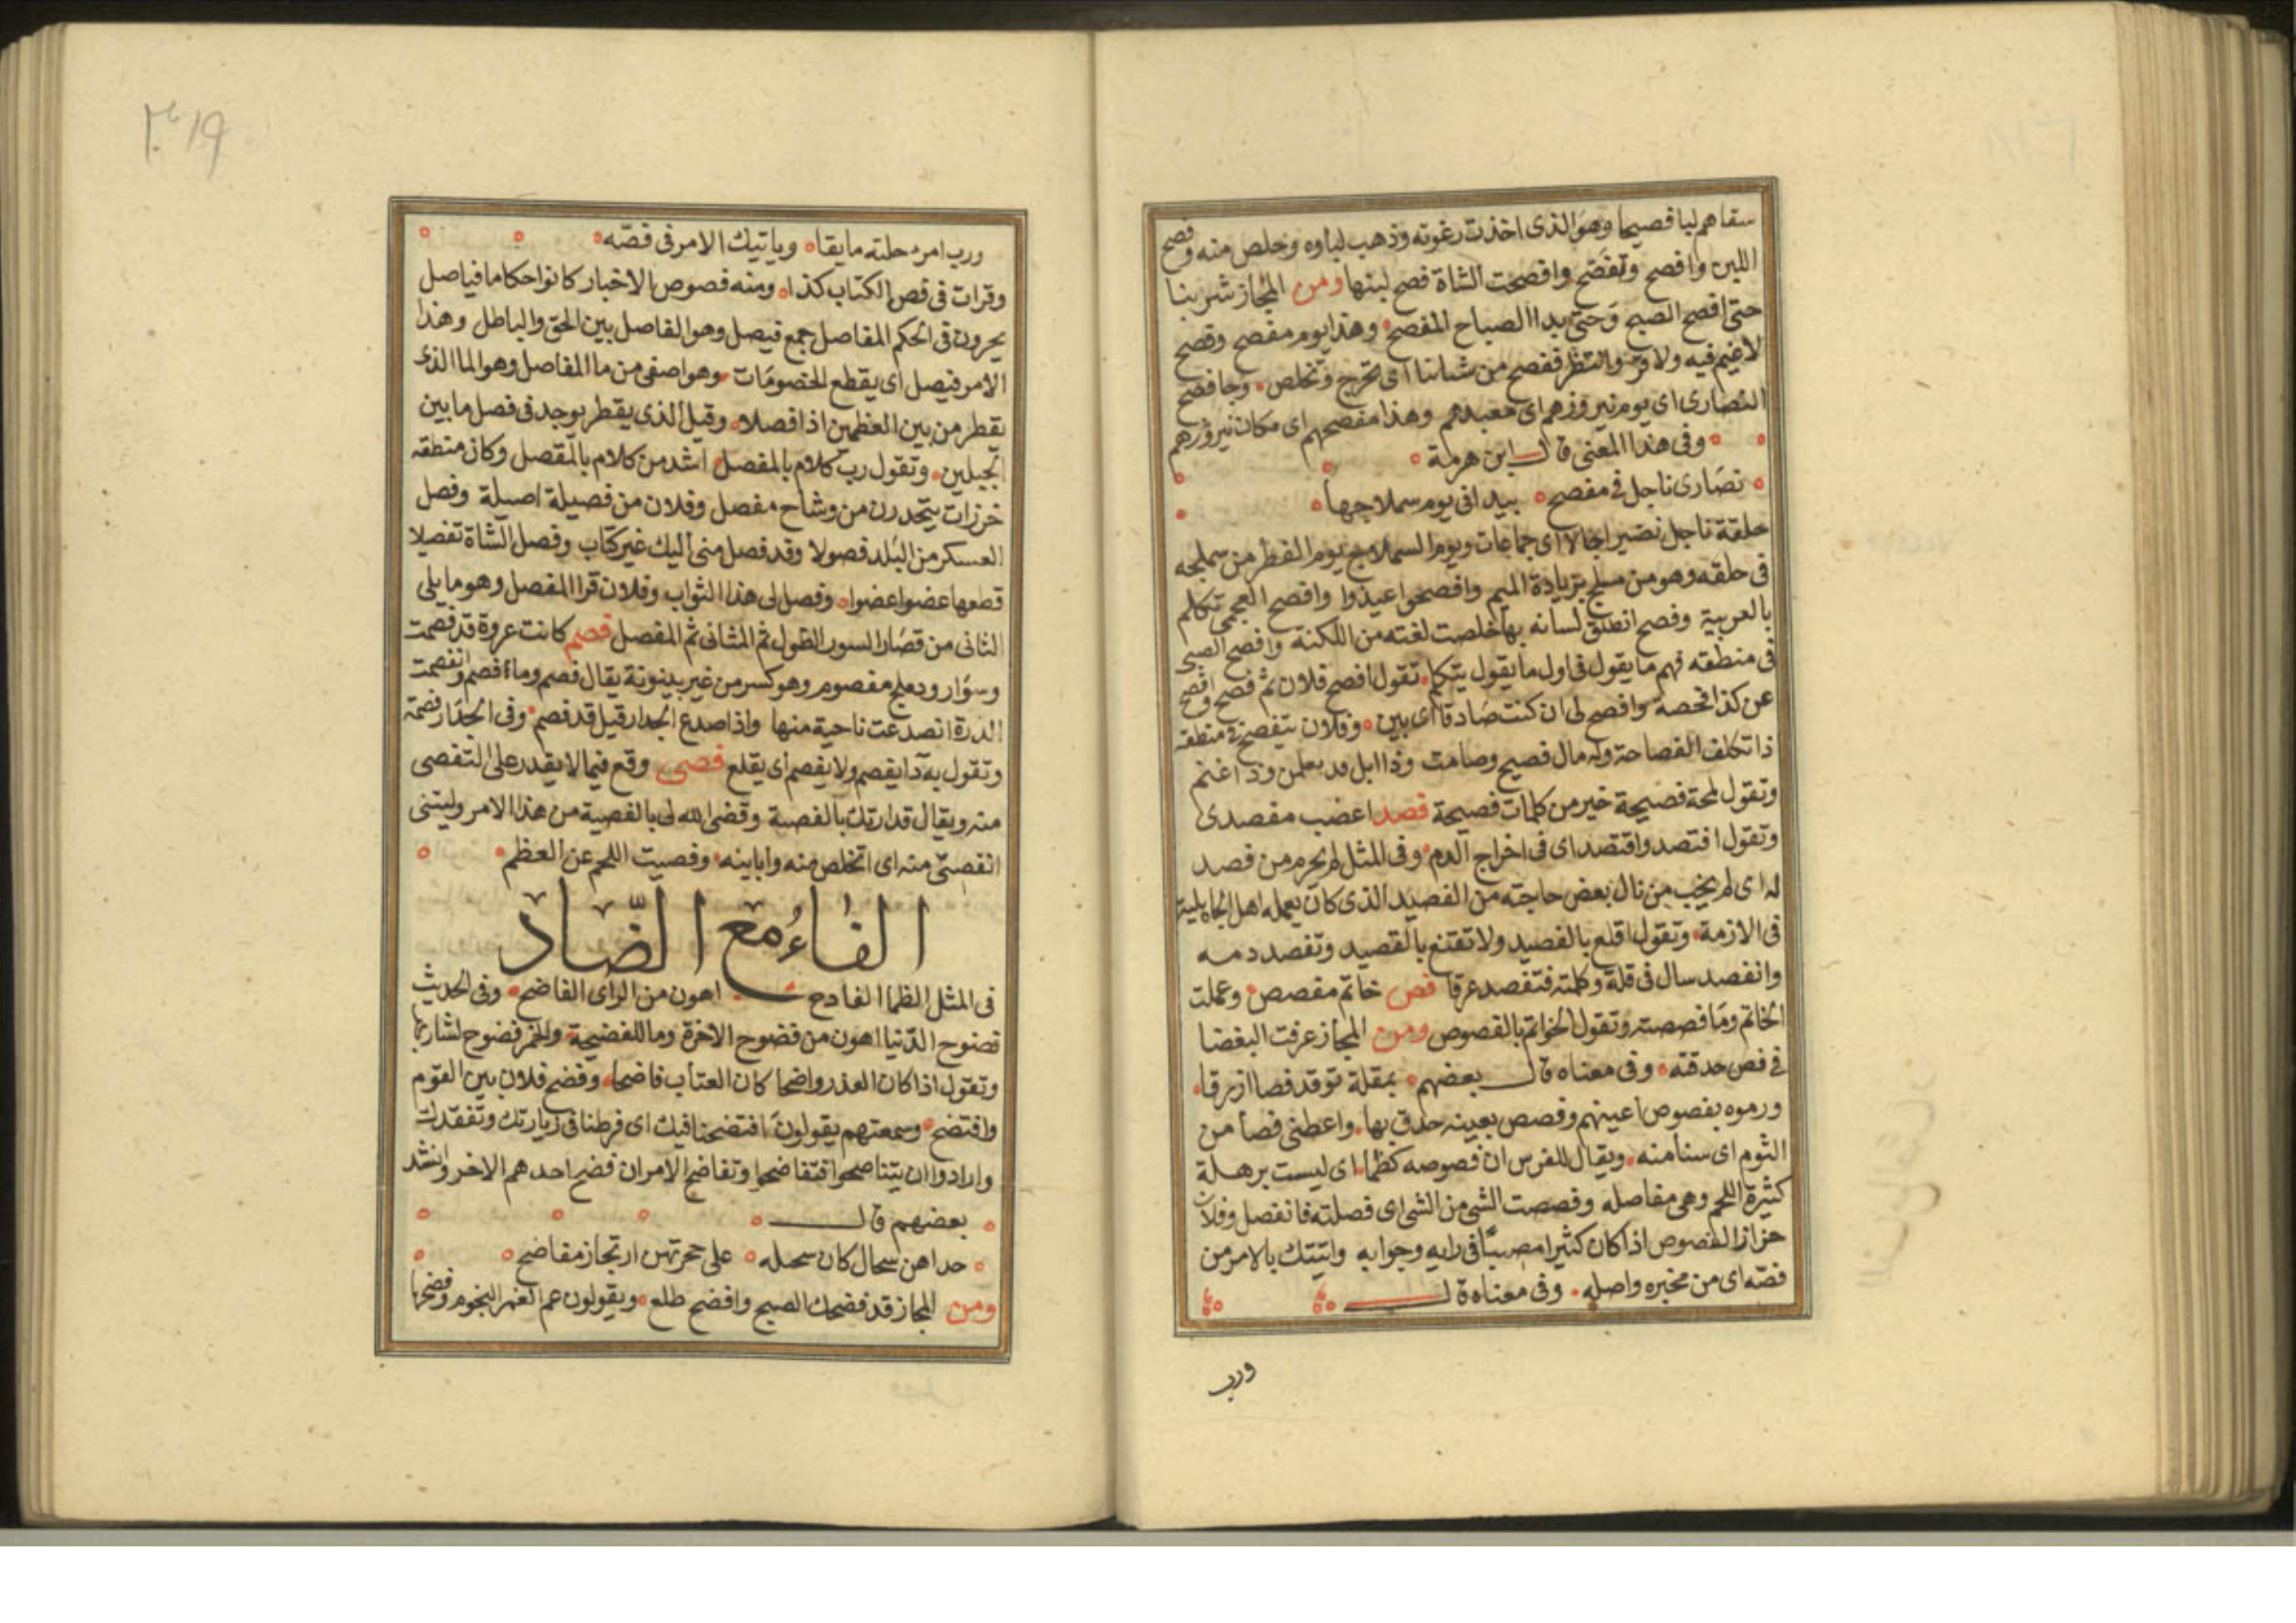 سقاهم لبنا فصيحا وهو الذى اخذت رغوته وذهب لباوه وخلص منه وفصح
اللبن وافصح وتفصح وافصحت الشاة فصح لبنها ومن المجاز شربنا
حتى افصح الصبح وحتى بدا الصباح المفصح وهذا يوم مفصح وفصح
لا غيم فيه ولا قر وانتظر نفصح من شتانا اى نخرج ونخلص وجا فصح
النصارى اى يوم نيروزهم اى معيدهم وهذا مفصحهم اى مكان نيروزهم
وفى هذا المعنى قال ابن هرمة
نصارى تاجل فى مفصح ببيداء فى يوم سملاجها
حلقة تاجل تصير اجالا اى جماعات ويوم السملاج يوم الفطر من سملجه
فى حلقه وهو من سلج بزيادة الميم وافصحوا عيدوا وافصح العجمى تكلم
بالعربية وفصح انطلق لسانه بها خلصت لغته من اللكنة وافصح الصبى
فى منطقه فهم ما يقول فى اول ما يقول يتكلم تقول افصح فلان ثم فصح وافصح
عن كذا لخصه وافصح لى ان كنت صادقا اى بين وفلان يتفصح فى منطقه
اذا تكلف الفصاحة وله مال فصيح وصامت
وتقول لمحة فصيحة خير من كلمات فصيحة فصد اعضب مفصدى
وتقول افتصد واقتصد اى فى اخراج الدم وفى المثل لم يحرم من فصد
له اى لم يخب من نال بعض حاجته من الفصيد الذى كان يعمله اهل الجاهلية
فى الازمة وتقول اقلع بالفصيد ولا تقتنع بالقصيد وتفصد دمه
وانفصد سال فى قلة وكلمته فتفصد عرقا فص خاتم مفصص وعملت
الخاتم وما فصصته وتقول الخواتم بالفصوص ومن المجاز عرفت البغضا
فى فص حدقته وفى معناه قال بعضهم بمقلة توقد فصا ازرقا
ورموه بفصوص اعينهم وفصص بعينه حدق بها واعطنى فصا من
الثوم اى سنا منه ويقال للفرس ان فصوصه لظماء اى ليست برهلة
كثيرة اللحم وهى مفاصله وفصصت الشى من الشى اى فصلته فانفصل وفلان
حزاز الفصوص اذا كان كثيرا مصيبا فى رايه وجوابه واتيتك بالامر من
فصه اى من مخبره واصله وفى معناه قال
ورب
٣١٩
ورب امر حلته مايقا وياتيك الامر فى فصه
وقرات فى فص الكتاب كذا ومنه فصوص الاخبار كانوا حكاما فياصل
يحزون فى الحكم المفاصل جمع فيصل وهو الفاصل بين الحق والباطل وهذا
الامر فيصل اى يقطع للخصومات وهو اصفى من ما المفاصل وهو الما الذى
يقطر من بين العظمين اذا فصلا وقيل الذى يقطر يوجد فى فصل ما بين
الجبلين وتقول رب كلام بالمفصل اشد من كلام بالمقصل وكان منطقه
خرزات يتحدرن من وشاح مفصل وفلان من فصيلة اصيلة وفصل
العسكر من البلد فصولا وقد فصل منى اليك غير كتاب وفصل الشاة تفصيلا
قطعها عضوا عضوا وفصل لى هذا الثواب وفلان قرا المفصل وهو ما يلى
الثانى من قصار السور الطول ثم المثانى ثم المفصل فصم كانت عروة قد فصمت
وسوار ودملج مفصوم وهو كسر من غير بينونة يقال فصم وما افصم وانفصمت
الدرة انصدعت ناحية منها واذا صدع الجدار قيل قد فصم وفى الجدار فصمة
وتقول به دا يفصم ولا يفصم اى يقلع فصى وقع فيما لا يقدر على التفصى
منه ويقال قد ارتك بالفصية وقضى الله لى بالفصية من هذا الامر وليتنى
اتفصى منه اى اتخلص منه واباينه وفصيت اللحم عن العظم
الفاء مع الضاد
فى المثل الظما الفادح اهون من الراى الفاضح وفى الحديث
فضوح الدنيا اهون من فضوح الاخرة وما للفضيحة والخمر فضوح لشاربها
وتقول اذا كان العذر واضحا كان العتاب فاضحا وفضح فلان بين القوم
وافتضح وسمعتهم يقولون افتضحنا فيك اى فرطنا فى زيارتك وتفقدك
وارادوا ان يتناصحوا فتفاضحوا وتفاضح الامران فضح احدهم الاخر وانشد
بعضهم قال
حداهن سحال كان سحيله على حجرتيهن ارتجاز مفاضح
ومن المجاز قد فضحك الصبح وافضح طلع ويقولون عم القمر النجوم وفضحها